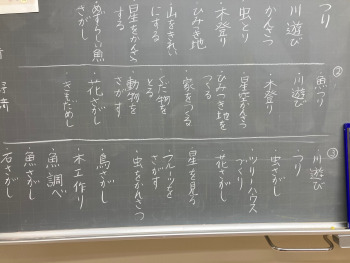 つり
川遊び
かんさつ
虫とり
・木登り
ひみき地
・山をきれい
にする
・星をかんさつ
する
・めずらしい魚
さがし
②
魚つり
川遊び
木登り
星空かんさつ
・ひみつき地を
つくる
・家をつくる
・くだ物を
とる
・動物を
さがす
・花さがし
・きもだめし
③
川遊び
つり
・虫さがし
・ツリーハウス
づくり
・花さがし
星を見る
・フルーツを
さがす
・虫をかんさつ
・鳥さがし
・木工作り
・魚調べ
・魚さがし
石さがし